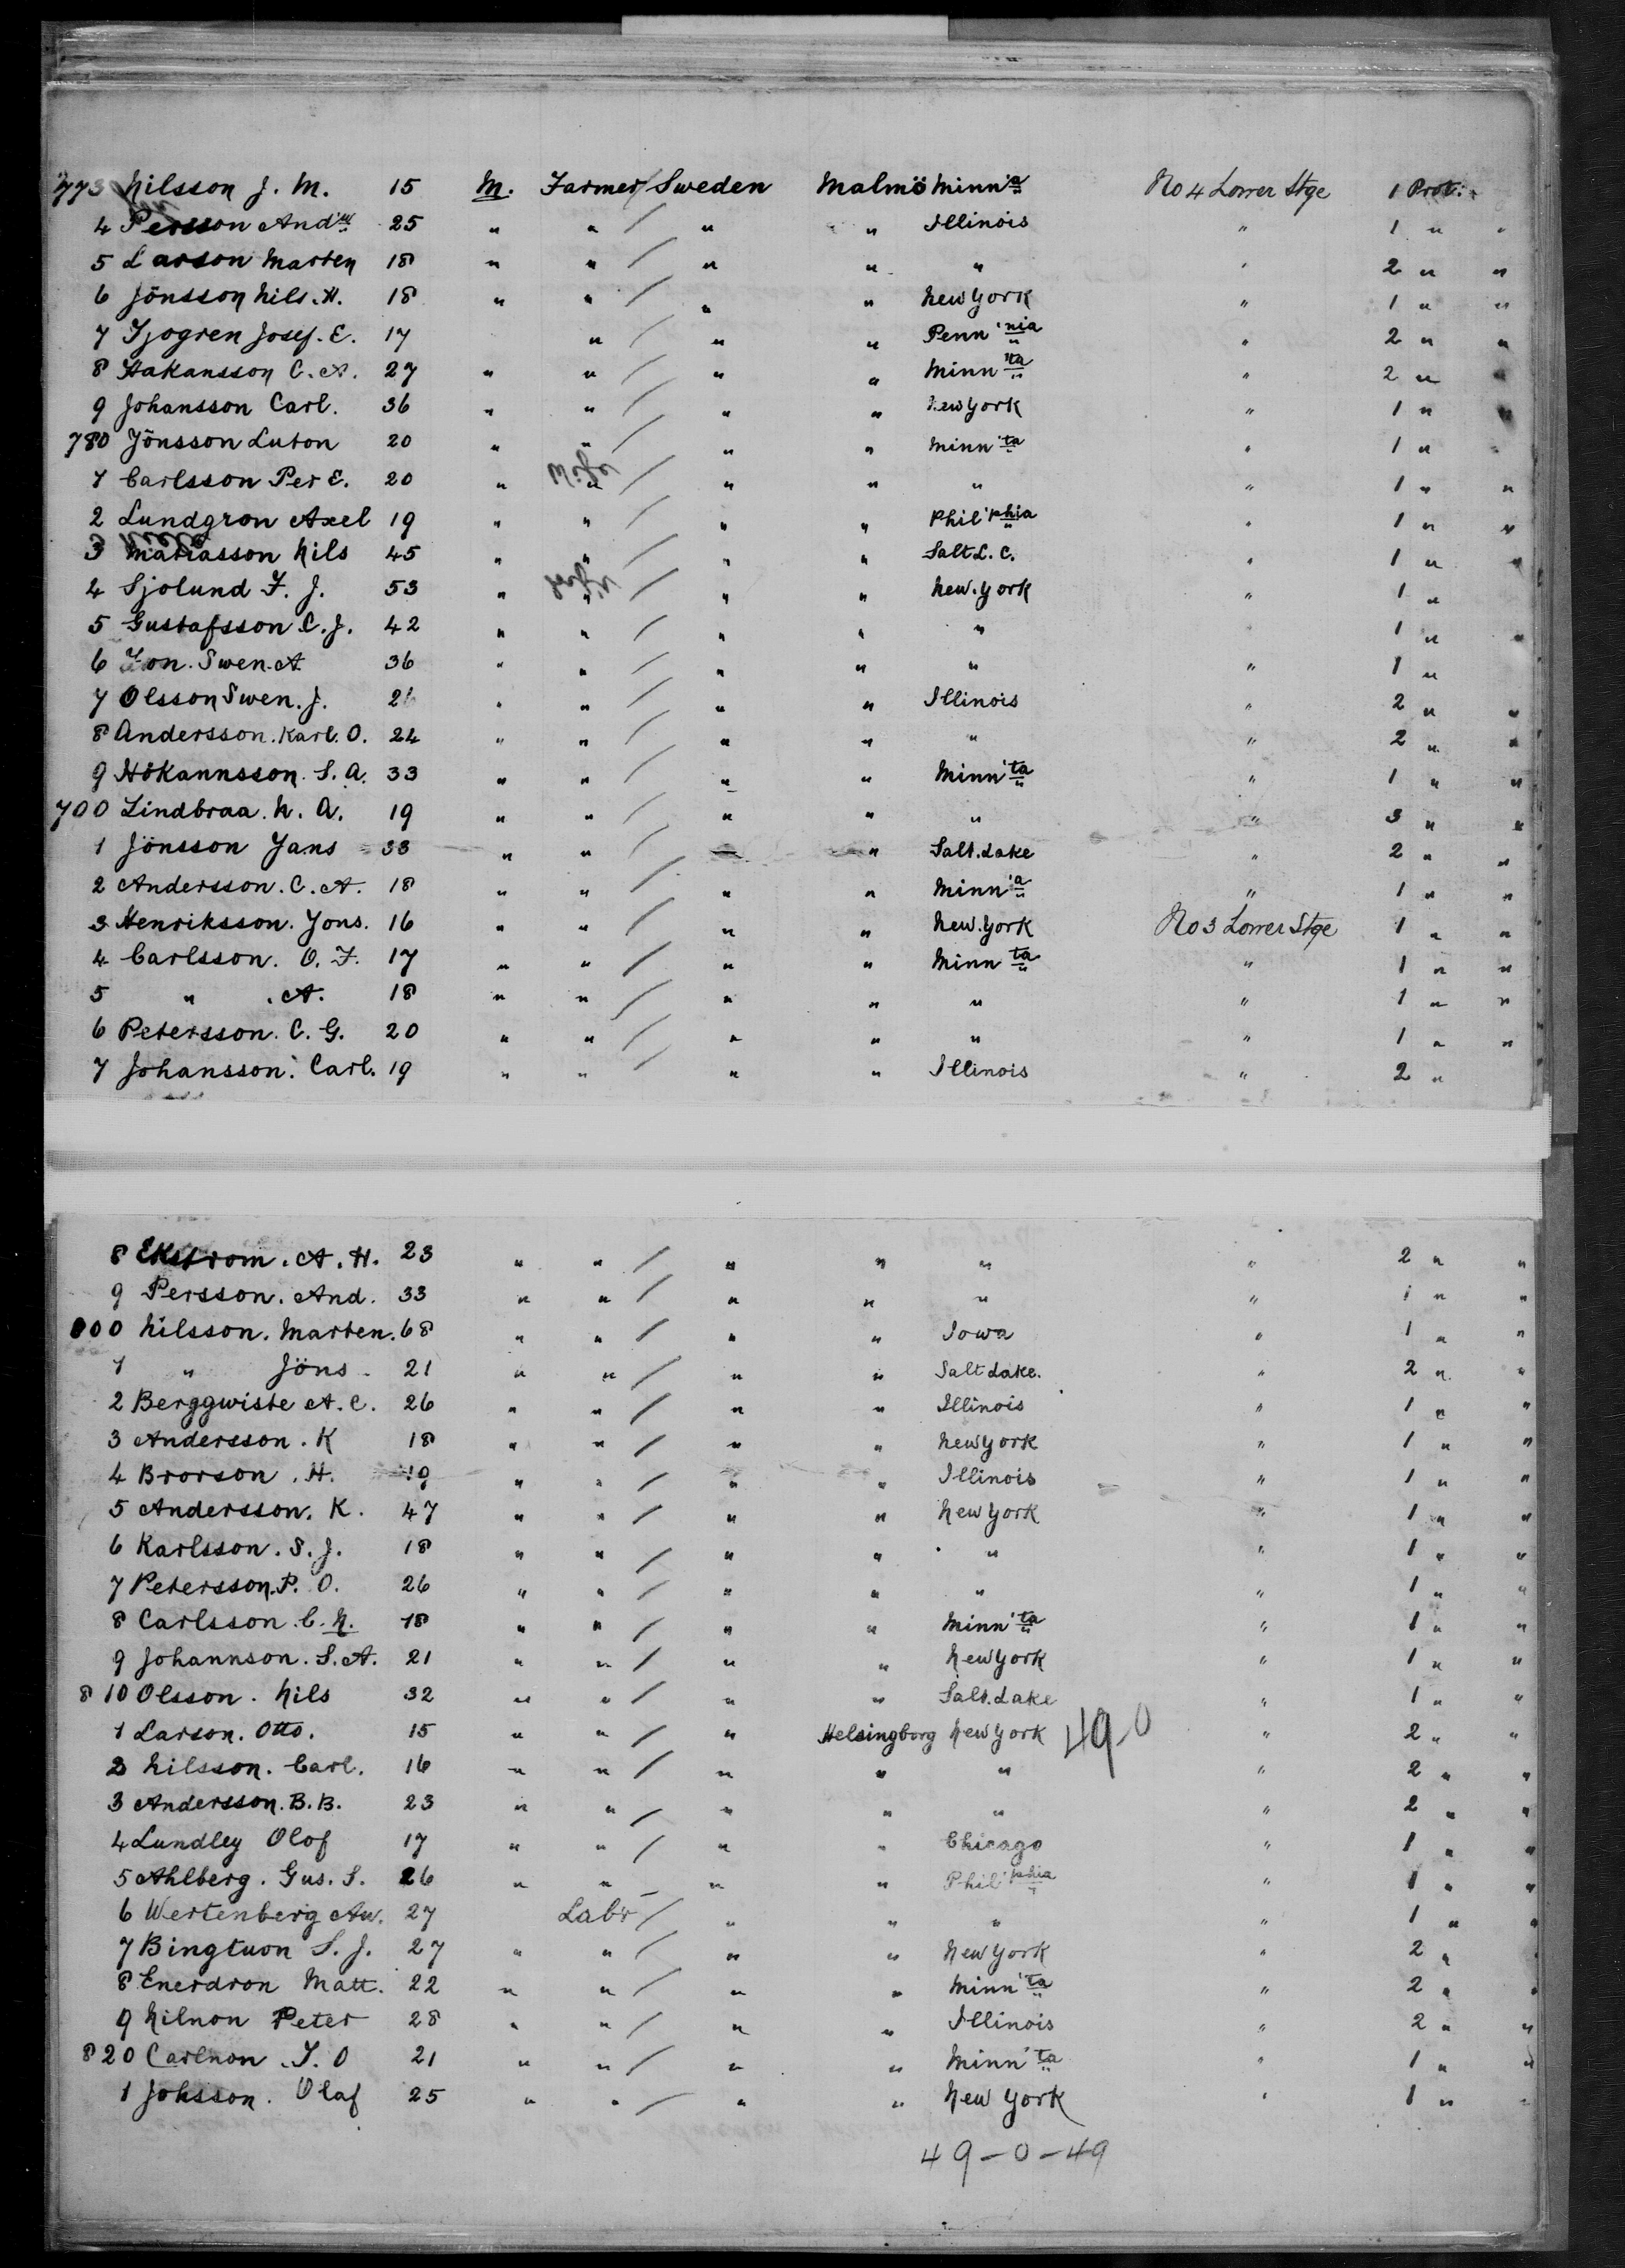 773 Nilsson J. M. 15 M. Farmer / Sweden Malmö Minn'a No 4 Lower Stge 1 Prot:
4 Persson And 25 " " / " " Illinois " 1 " "
5 Larson Marten 18 " " / " " " " 2 " "
6 Jönsson Nils. H. 18 " " / " " New York " 1 " "
7 Sjogren Josef. E. 17 " / " " Penn'nia " 2 " "
8 Hakansson C. A. 27 " " / " " Minn'ta " 2 " "
9 Johansson Carl. 36 " " / " " New York " 1 " "
780 Jönsson Luton 20 " " / " " Minn'ta " 1 " "
1 Carlsson Per E. 20 " " / " " " " 1 " "
2 Lundgron Axel 19 " " / " " Phil'phia " 1 " "
3 Matiasson Nils 45 " " / " " Salt L. C. " 1 " "
4 Sjolund F. J. 53 " " / " " New. York " 1 "
5 Gustafsson C. J. 42 " " / " " " 1 " "
6 Swen. A 36 " " / " " " " 1 "
7 Olsson Swen. J. " " / " " Illinois " 2 " "
8 Andersson. Karl. O. 24 " " / " " " " 2 " "
9 Hökannsson. S. A. 33 " " / " " Minn'ta " 1 " "
700 Lindbraa. N. A. 19 " " / " " " " 3 " "
1 Jönsson Jans 33 " " / " " Salt. Lake " 2 " "
2 Andersson. C. A. 18 " " / " " Minn'a " 1 " "
3 Henriksson. Jons. 16 " " / " " New. York No 3 Lower Stge 1 " "
4 Carlsson. O. F. 17 " " / " " Minn ta " 1 " "
5 " . A. 18 " " / " " " " 1 " "
6 Petersson. C. G. 20 " " / " " " " 1 " "
7 Johansson. Carl. 19 " " / " " Illinois " 2 "
8 Ekstrom. A. H. 23 " " / " " " " 2 " "
9 Persson. And. 33 " " / " " " " 1 " "
800 Nilsson. Marten. 68 " " / " " Iowa " 1 " "
1 " Jöns. 21 " " / " " Salt Lake. " 2 " "
2 Berggwiste A. C. 26 " " / " " Illinois " 1 " "
3 Andersson. K 18 " " / " " New York " 1 " "
4 Brorson. H. 19 " " / " " Illinois " 1 " "
5 Andersson. K. 47 " " / " " New York " 1 " "
6 Karlsson. S. J. 18 " " / " " " " 1 " "
7 Petersson. P. O. 26 " " / " " " " 1 " "
8 Carlsson. C. N. 18 " " / " " Minn'ta " 1 " "
9 Johannson. S. A. 21 " " / " " New York " 1 " "
810 Olsson. Nils 32 " " / " " Salt. Lake " 1 " "
1 Larson. Otto. 15 " " / " Helsingborg New York 49-0 " 2 " "
2 Nilsson. Carl. 16 " " / " " " " 2 " "
3 Andersson. B. B. 23 " " / " " " " 2 " "
4 Lundley Olof 17 " " / " " Chicago " 1 " "
5 Ahlberg. Gus. S. 26 " " / " " Phil'phia " 1 " "
6 Wertenberg Aw. 27 Labr / " " " " 1 " "
7 Bingtuon S. J. 27 " " / " " New York " 2 "
8 Enerdron Matt. 22 " " / " " Minn'ta " 2 " "
9 Nilnon Peter 28 " " / " " Illinois " 2 " "
820 Carlnon. J. O 21 " " / " " Minn'ta " 1 " "
1 Johsson. Olaf 25 " " / " " New York " 1 " "
49-0-49